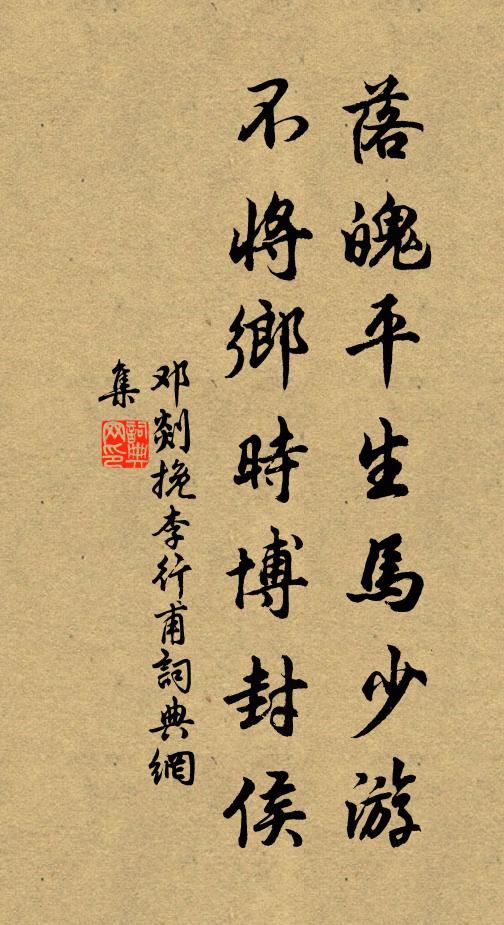 落魄平生馬少游
不將鄉時博封侯
邓剡挽李行甫詞典網
集
詞典網印